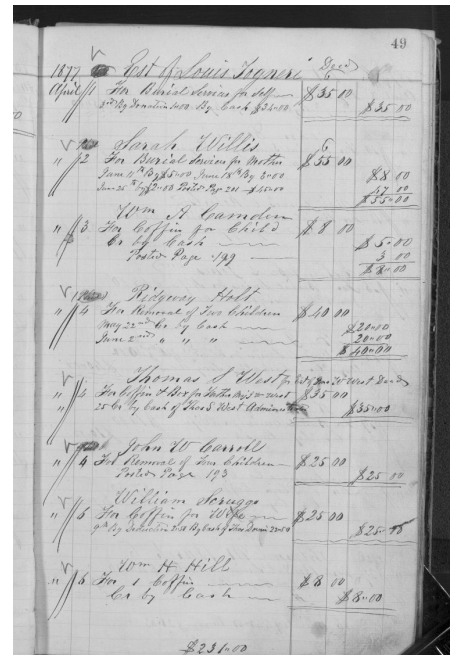 49
1877 Est of Louis Togneri Decd
April 1 For Burial Services for Self $35 00
By Donation 1.00 By Cash $34.00 $35.00
Sarah Willis
" 2 For Burial Services for Mother $55 00
June 11th By $5.00 June 18th By 3.00 $8 00
June 26th By $2.00 Posted Page 201 $45.00 47 00
$55.00
Wm A Camden
" 3 For Coffin for Child $8 00
Cr by Cash $5.00
Posted Page 199 3 00
$8.00
Ridgway Holt
" 4 For Removal of Two Children $40 00
May 22nd Cr by Cash $20.00
June 2nd " " " 20.00
$40.00
Thomas S West for West Decd
" 4 For Coffin & Box for Father West $35 00
" 25 Cr by Cash of Thos S West Administrator $35.00
John W Carroll
" 4 For Removal of Four Children $25 00
Posted Page 193 $25 00
William Scruggs
" 5 For Coffin for Wife $25 00
By Deduction By Cash of 22.50 $25
Wm H Hill
" 6 For 1 Coffin $8 00
Cr by Cash $8.00
$231.00